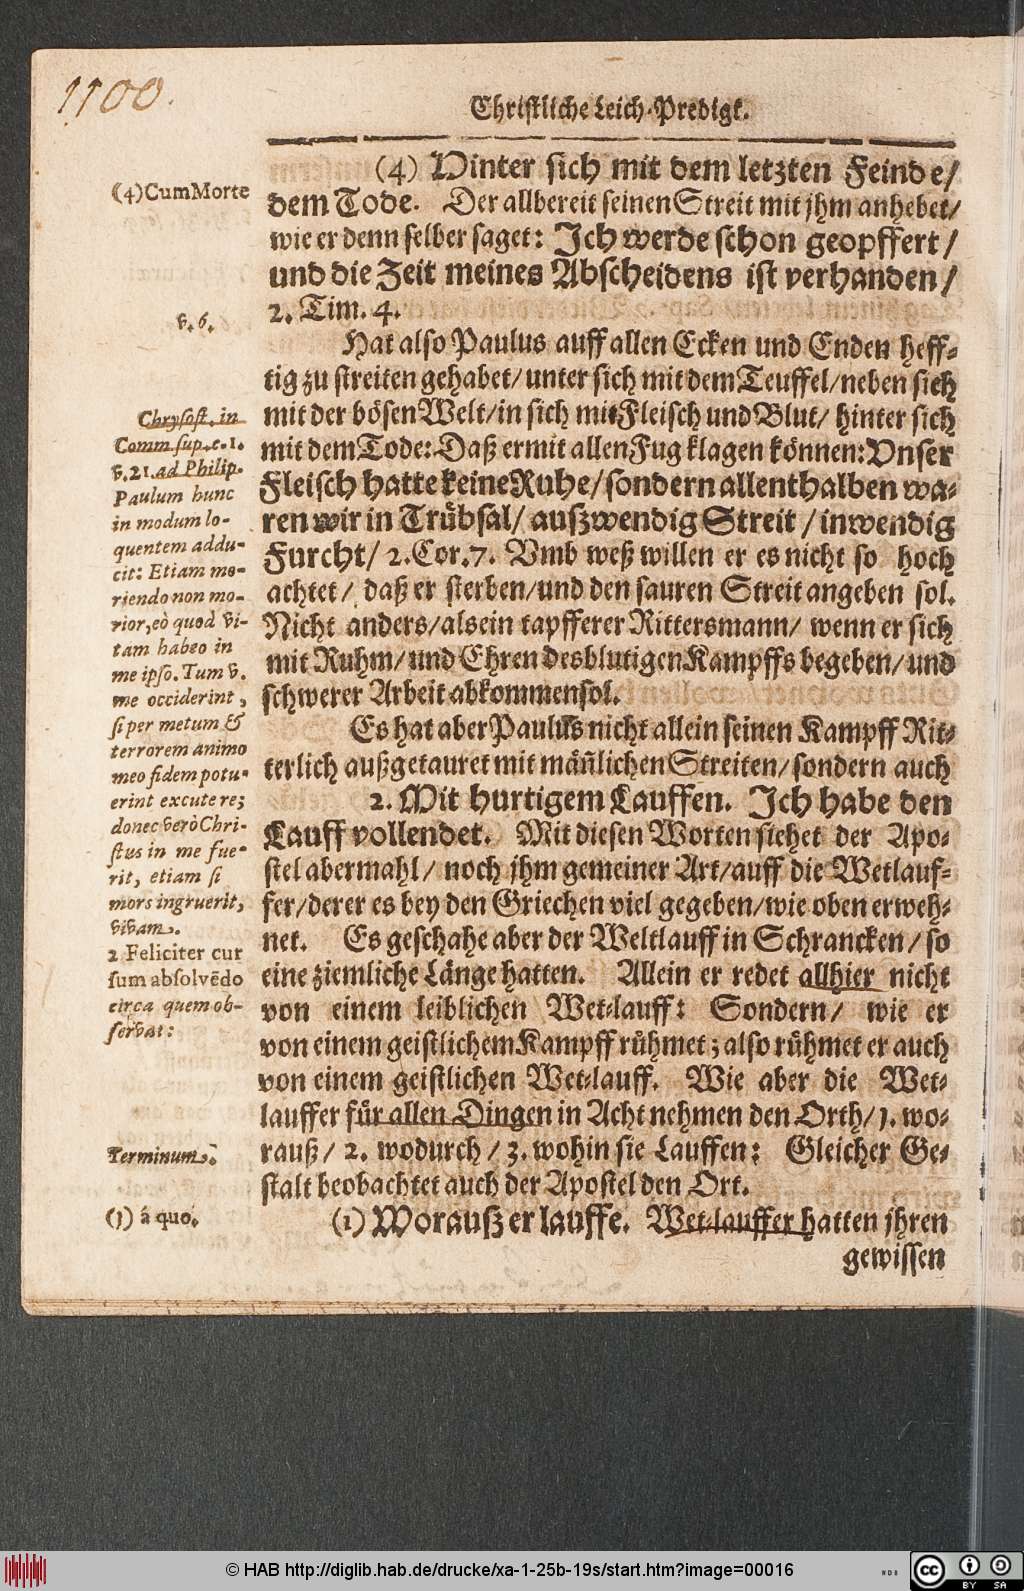 1100.
Christliche Leich-Predigt.
(4) Hinter sich mit dem letzten Feinde/
dem Tode. Der allbereit seinen Streit mit jhm anhebet/
wie er denn selber saget: Jch werde schon geopffert/
und die Zeit meines Abscheidens ist verhanden/
2. Tim. 4.
Hat also Paulus auff allen Ecken und Enden heff-
tig zu streiten gehabet/ unter sich mit dem Teuffel/ neben sich
mit der bösen Welt/ in sich mit Fleisch und Blut/ hinter sich
mit dem Tode: Daß er mit allen Fug klagen können: Vnser
Fleisch hatte keine Ruhe/ sondern allenthalben wa-
ren wir in Trübsal/ außwendig Streit/ inwendig
Furcht/ 2. Cor. 7. Vmb weß willen er es nicht so hoch
achtet/ daß er sterben/ und den sauren Streit angeben sol.
Nicht anders/ als ein tapfferer Rittersmann/ wenn er sich
mit Ruhm/ und Ehren des blutigen Kampffs begeben/ und
schwerer Arbeit abkommen sol.
Es hat aber Paulus nicht allein seinen Kampff Rit-
terlich außgetauret mit mäñlichen Streiten/ sondern auch
2. Mit hurtigem Lauffen. Jch habe den
Lauff vollendet. Mit diesen Worten siehet der Apo-
stel abermahl/ noch jhm gemeiner Art/ auff die Wetlauf-
fer/ derer es bey den Griechen viel gegeben/ wie oben erweh-
net. Es geschahe aber der Weltlauff in Schrancken/ so
eine ziemliche Länge hatten. Allein er redet allhier nicht
von einem leiblichen Wet-lauff: Sondern/ wie er
von einem geistlichem Kampff rühmet; also rühmet er auch
von einem geistlichen Wet-lauff. Wie aber die Wet-
lauffer für allen Dingen in Acht nehmen den Orth/ 1. wo-
rauß/ 2. wodurch/ 3. wohin sie Lauffen: Gleicher Ge-
stalt beobachtet auch der Apostel den Ort.
(1) Worauß er lauffe. Wet-lauffer hatten jhren
gewissen
(4) Cum Morte
v. 6.
Chrysost. in
Comm sup. c. 1.
v. 21. ad Philip.
Paulum hunc
in modum lo-
quentem addu-
cit: Etiam mo-
riendo non mo-
rior, eò quod vi-
tam habeo in
me ipso. Tum v.
me occiderint,
si per metum &
terrorem animo
meo fidem potu-
erint excutere;
donec verò Chri-
stus in me fue-
rit, etiam si
mors ingruerit,
vivam.
2 Feliciter cur
sum absolvēdo
circa quem ob-
servat:
Terminum:
(1) á quo.
© HAB http://diglib.hab.de/drucke/xa-1-25b-19s/start.htm?image=00016
cc BY SA